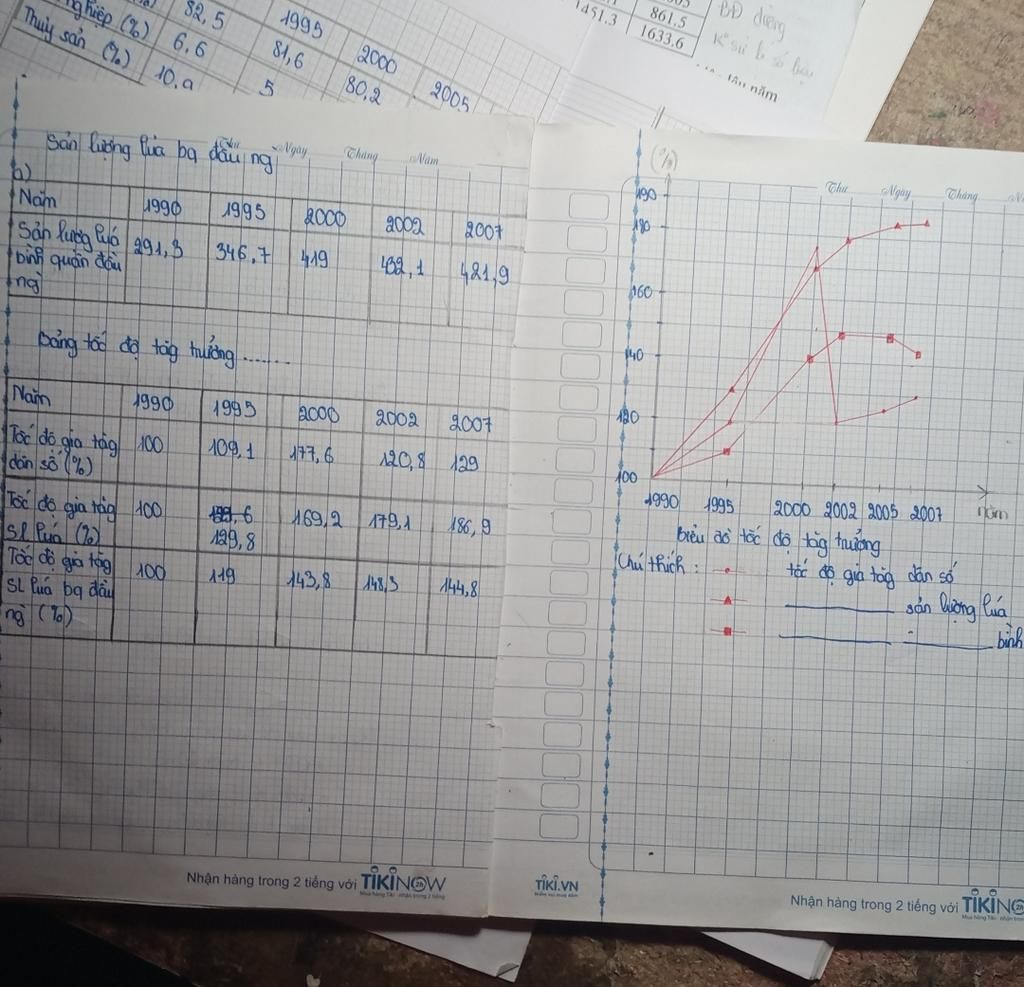 nghiệp (%) 82,5 1995 2000 2005
Thủy sản (%) 6.6 81,6 80,2
10.9 5
1451.3 861.5
1633.6
BĐ đường
năm
Sản lượng lúa bq đầu ng
Thứ Ngày Tháng Năm
a)
Năm 1990 1995 2000 2002 2007
Sản lượng lúa 291,3 346,7 419 432,1 421,9
bình quân đầu
ng
Bảng tốc độ tăg trưởng.......
Năm 1990 1995 2000 2002 2007
Tốc độ gia tăg 100 109,1 177,6 120,8 129
dân số (%)
Tốc độ gia tăg 100 129,8 169,2 179,1 186,9
SL lúa (%)
Tốc độ gia tăg 100 119 143,8 148,3 144,8
SL lúa bq đầu
ng (%)
Nhận hàng trong 2 tiếng với TIKINOW 2h
Thứ Ngày Tháng
(%)
190
180
160
140
120
100
1990 1995 2000 2002 2005 2007 năm
Biểu đồ tốc độ tăg trưởng
Chú thích: tốc độ gia tăg dân số
sản lượng lúa
bình
TIKI.VN
Nhận hàng trong 2 tiếng với TIKINO